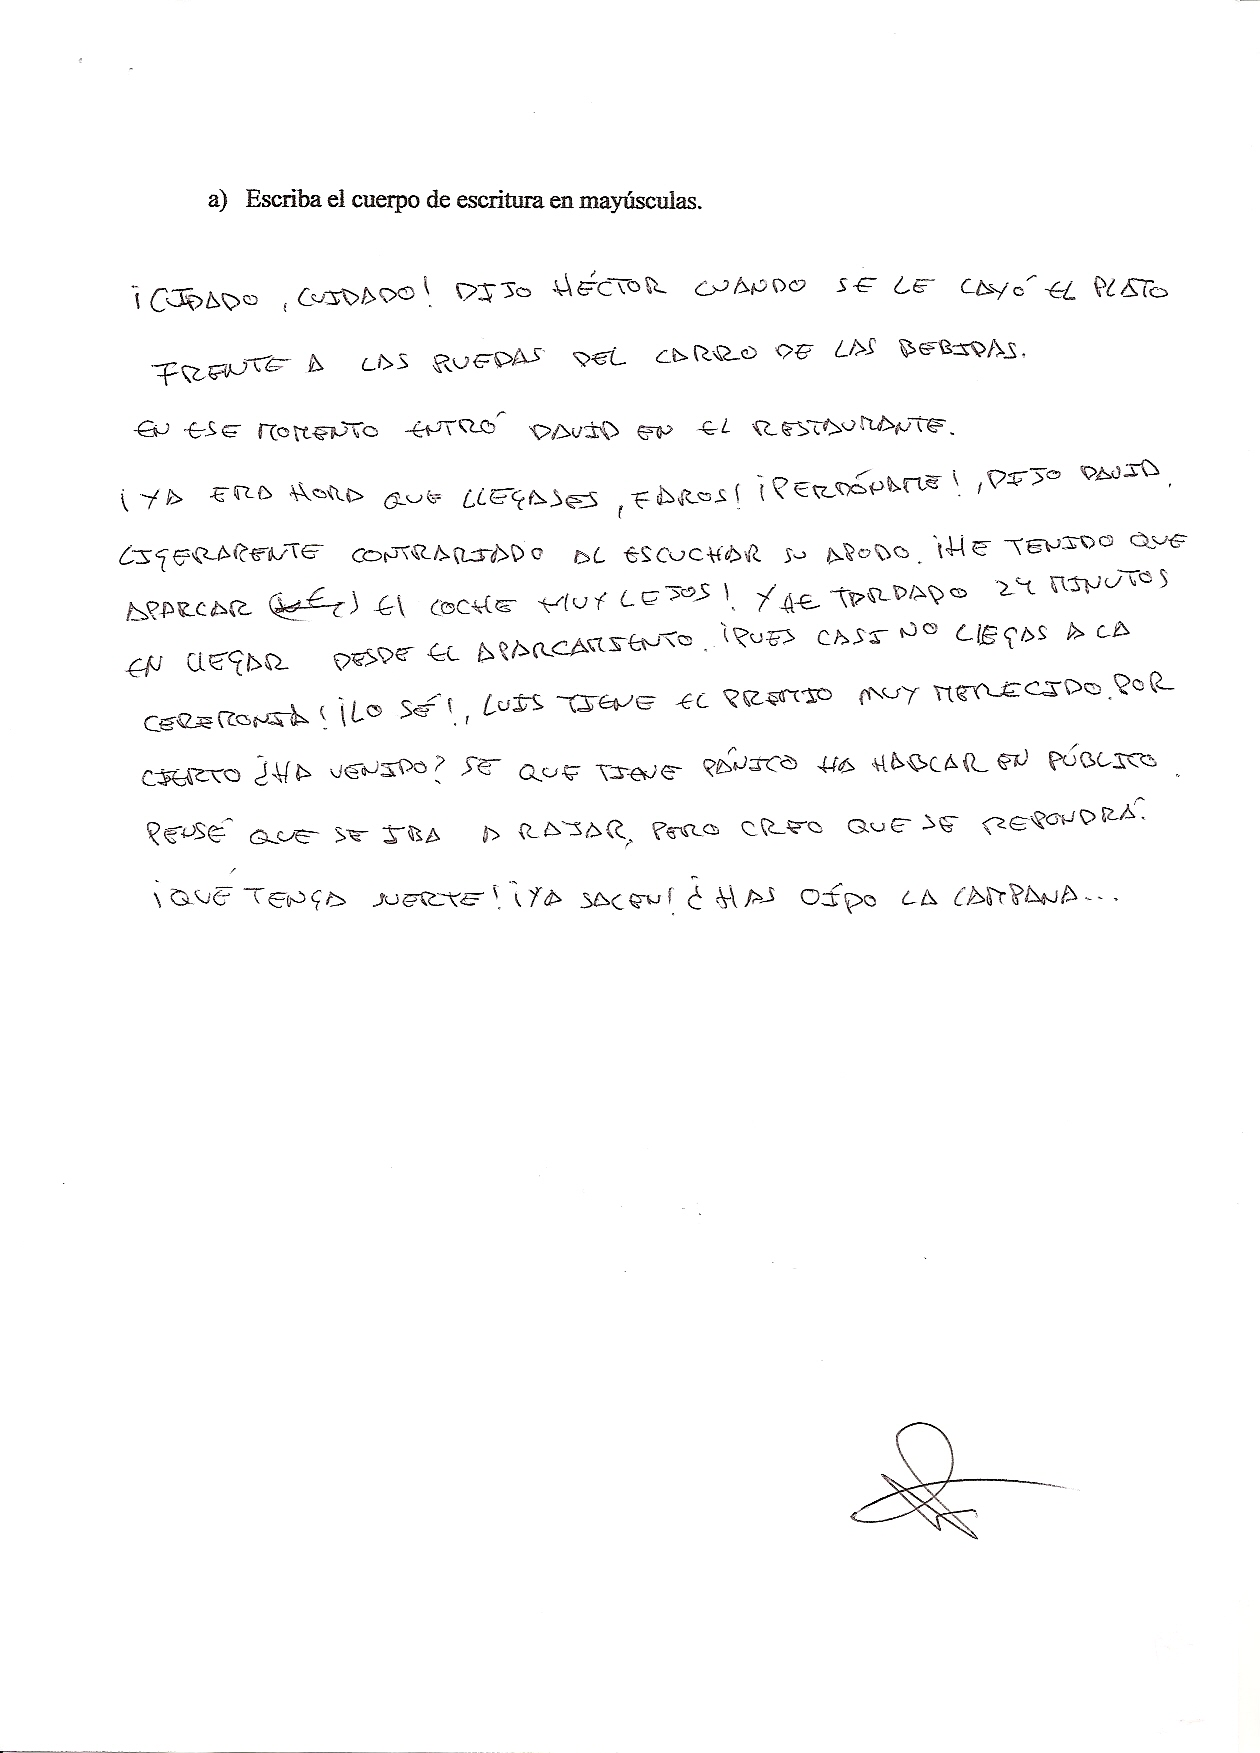 a) Escriba el cuerpo de escritura en mayúsculas.
¡CUIDADO, CUIDADO! DIJO HÉCTOR CUANDO SE LE CAYÓ EL PLATO
FRENTE A LAS RUEDAS DEL CARRO DE LAS BEBIDAS.
EN ESE MOMENTO ENTRÓ DAVID EN EL RESTAURANTE.
¡YA ERA HORA QUE LLEGASES, FAROS! ¡PERDÓNAME!, DIJO DAVID,
LIGERAMENTE CONTRARIADO AL ESCUCHAR SU APODO. ¡HE TENIDO QUE
APARCAR EL COCHE MUY LEJOS! Y HE TARDADO 24 MINUTOS
EN LLEGAR DESDE EL APARCAMIENTO. ¡PUES CASI NO LLEGAS A LA
CEREMONIA! ¡LO SÉ!, LUIS TIENE EL PREMIO MUY MERECIDO. POR
CIERTO ¿HA VENIDO? SE QUE TIENE PÁNICO HA HABLAR EN PÚBLICO.
PENSÉ QUE SE IBA A RAJAR, PERO CREO QUE SE REPONDRÁ.
¡QUÉ TENGA SUERTE! ¡YA SALEN! ¿HAS OÍDO LA CAMPANA...